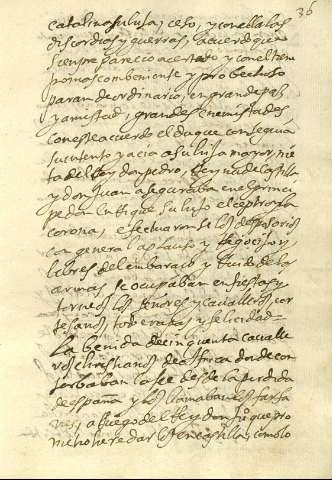 36
catalina su hija, ceso, y con ella las
discordias y guerras, acuerdo que
siempre parecio acertado y con el tiem
po mas combeniente y probechoso
paramdeordinario, en grande paz
y amistad, grandes enemistades,
con este acuerdo el duque conseguia
su yntento y acia a su hija mayor, nie
ta del Rey don pedro, Reyna de Castilla
y don Juan aseguraba en el princi
pe don enrrique su hijo el ceptro y la
corona, efectuaronse los desposorios
con general aplauso y Regocijo, y
libres del embaraço y Ruido de las
armas se ocupaban en fiestas y
torneos los señores y cavalleros, cor
tesanos,
La benida de cinquenta cavalle
ros christianos de Africa donde con
serbaban la fee desde la perdida
de españa y los llamaban los farfa
nes, a Ruego del Rey don Juº que pro
metio heredarlos en castilla, como lo